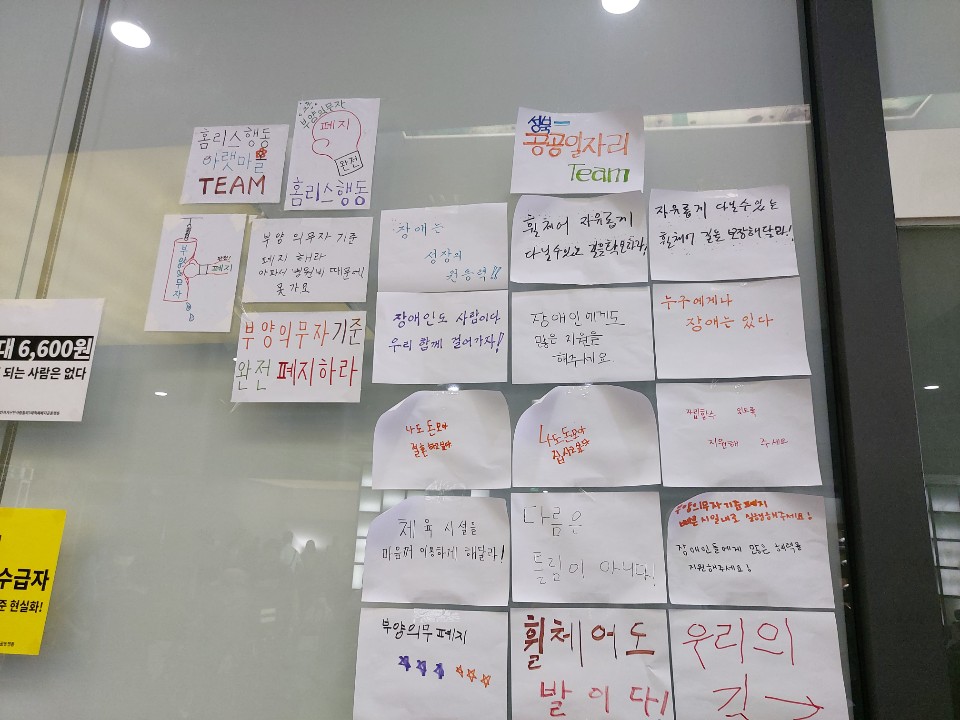 홈리스행동
아랫마을
TEAM
부양의무자
폐지
완전
홈리스행동
성북
공공일자리
Team
부양의무자
폐지
부양 의무자 기준
폐지 해라
아파서 병원비 때문에
못 가요
장애는
성장의
원동력!!
휠체어 자유롭게
다닐수있는
자유롭게 다닐수있는
휠체어 길을 보장해달라!
부양의무자기준
완전 폐지하라
장애인도 사람이다
우리 함께 걸어가자!
장애인에게도
많은 지원을
해주세요
누구에게나
장애는 있다
대 6,600원
되는 사람은 없다
나도 돈모아
결혼해보자
나도돈모아
집사보자
자립할수 있도록
지원해 주세요
체육 시설을
마음껏 이용하게 해달라!
다름은
틀림이 아니다!
부양의무자기준폐지
빠른 시일내로 실행해주세요!
장애인들에게 많은 협력을
지원해주세요!
수급자
준 현실화!
부양의무폐지
휠체어도
발이다!
우리의
길